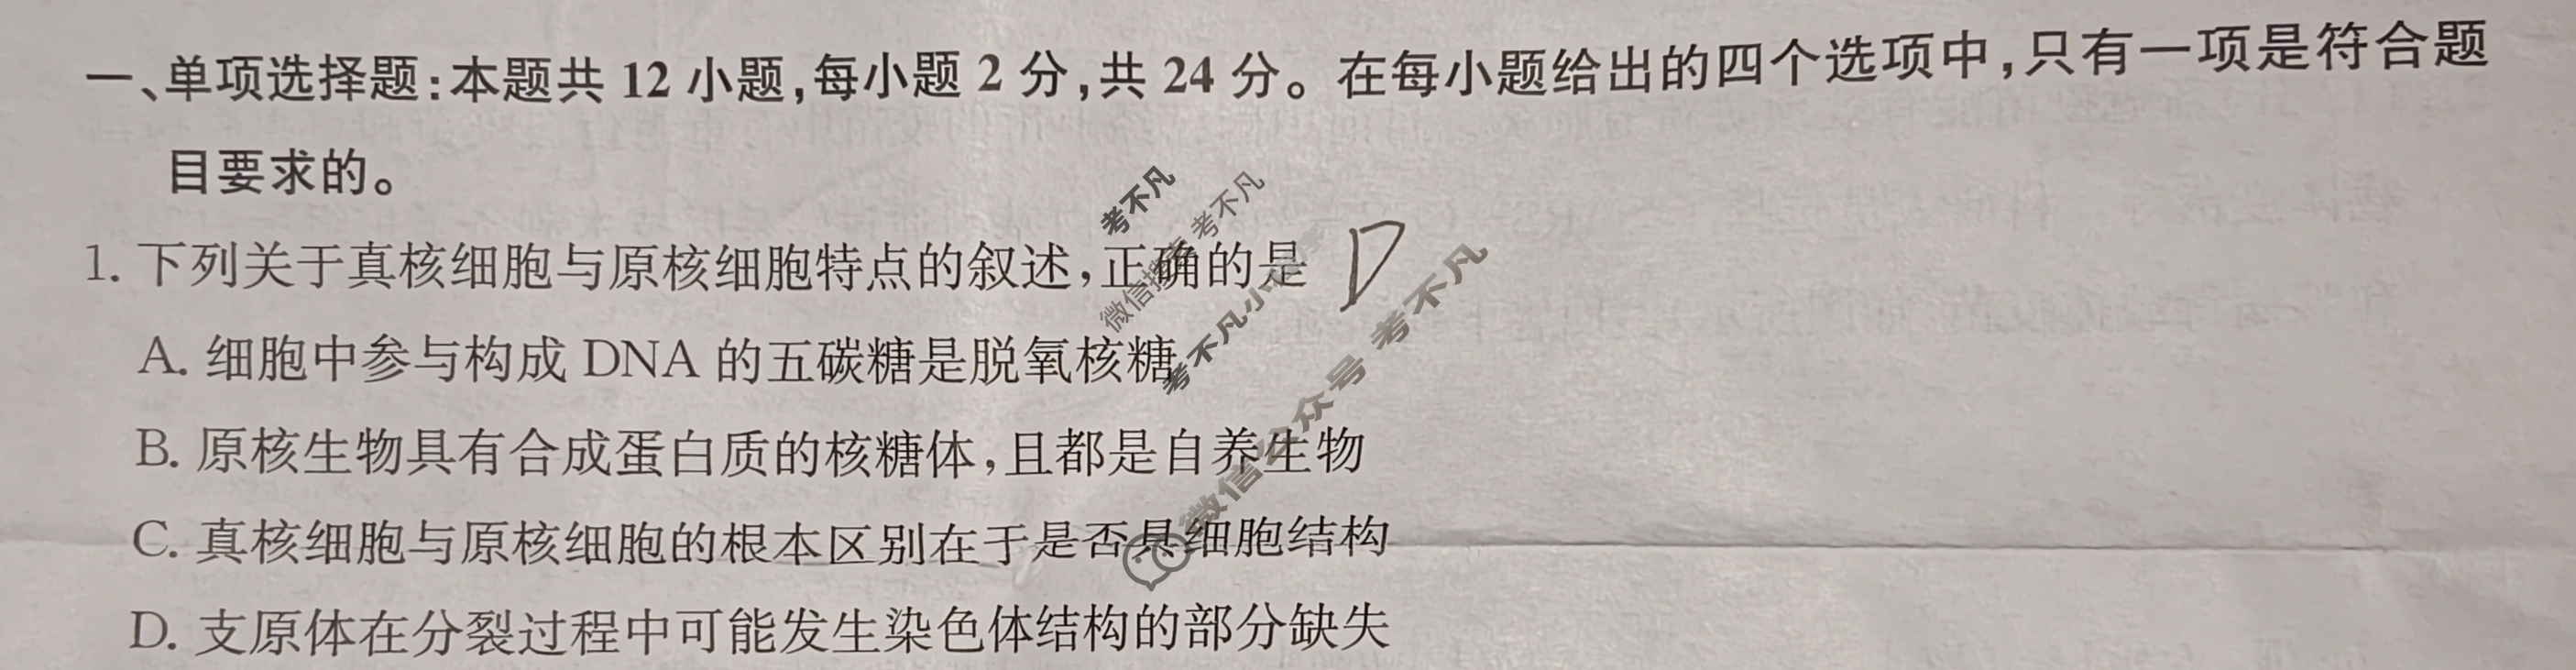 一、单项选择题:本题共 12 小题,每小题 2 分,共 24 分。在每小题给出的四个选项中,只有一项是符合题
目要求的。
1. 下列关于真核细胞与原核细胞特点的叙述,正确的是 D
A. 细胞中参与构成 DNA 的五碳糖是脱氧核糖
B. 原核生物具有合成蛋白质的核糖体,且都是自养生物
C. 真核细胞与原核细胞的根本区别在于是否具细胞结构
D. 支原体在分裂过程中可能发生染色体结构的部分缺失
考不凡
微信搜索 考不凡
考不凡小程序
微信公众号 考不凡